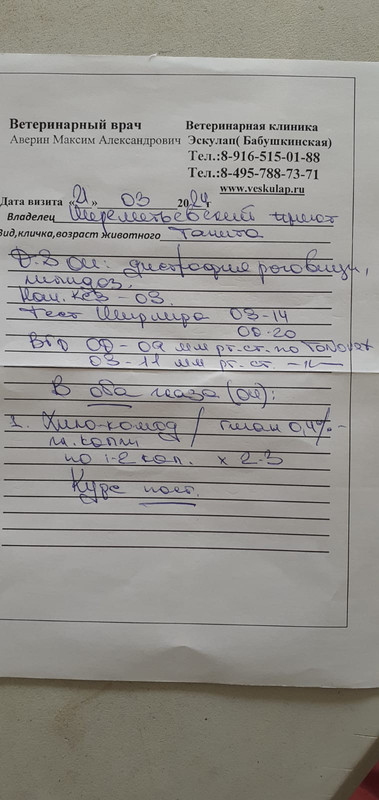 Ветеринарный врач Ветеринарная клиника
Аверин Максим Александрович Эскулап( Бабушкинская)
Тел.:8-916-515-01-88
Тел.:8-495-788-73-71
www.veskulap.ru
Дата визита «21» 03 2024г
Владелец Шереметьевский приют
Вид,кличка,возраст животного Танита
D.S OU: дистрофия роговицы,
липидоз.
- OS.
Тест Ширмера OS-14
OD-20
ВГД OD-09 мм рт.ст. по Tonovet
OS-11 мм рт. ст. -//-
В оба глаза (OU):
1. Хило-комод / Гилан 0,4%-
гл. капли
по 1-2 кап. х 2-3
Курс пост.